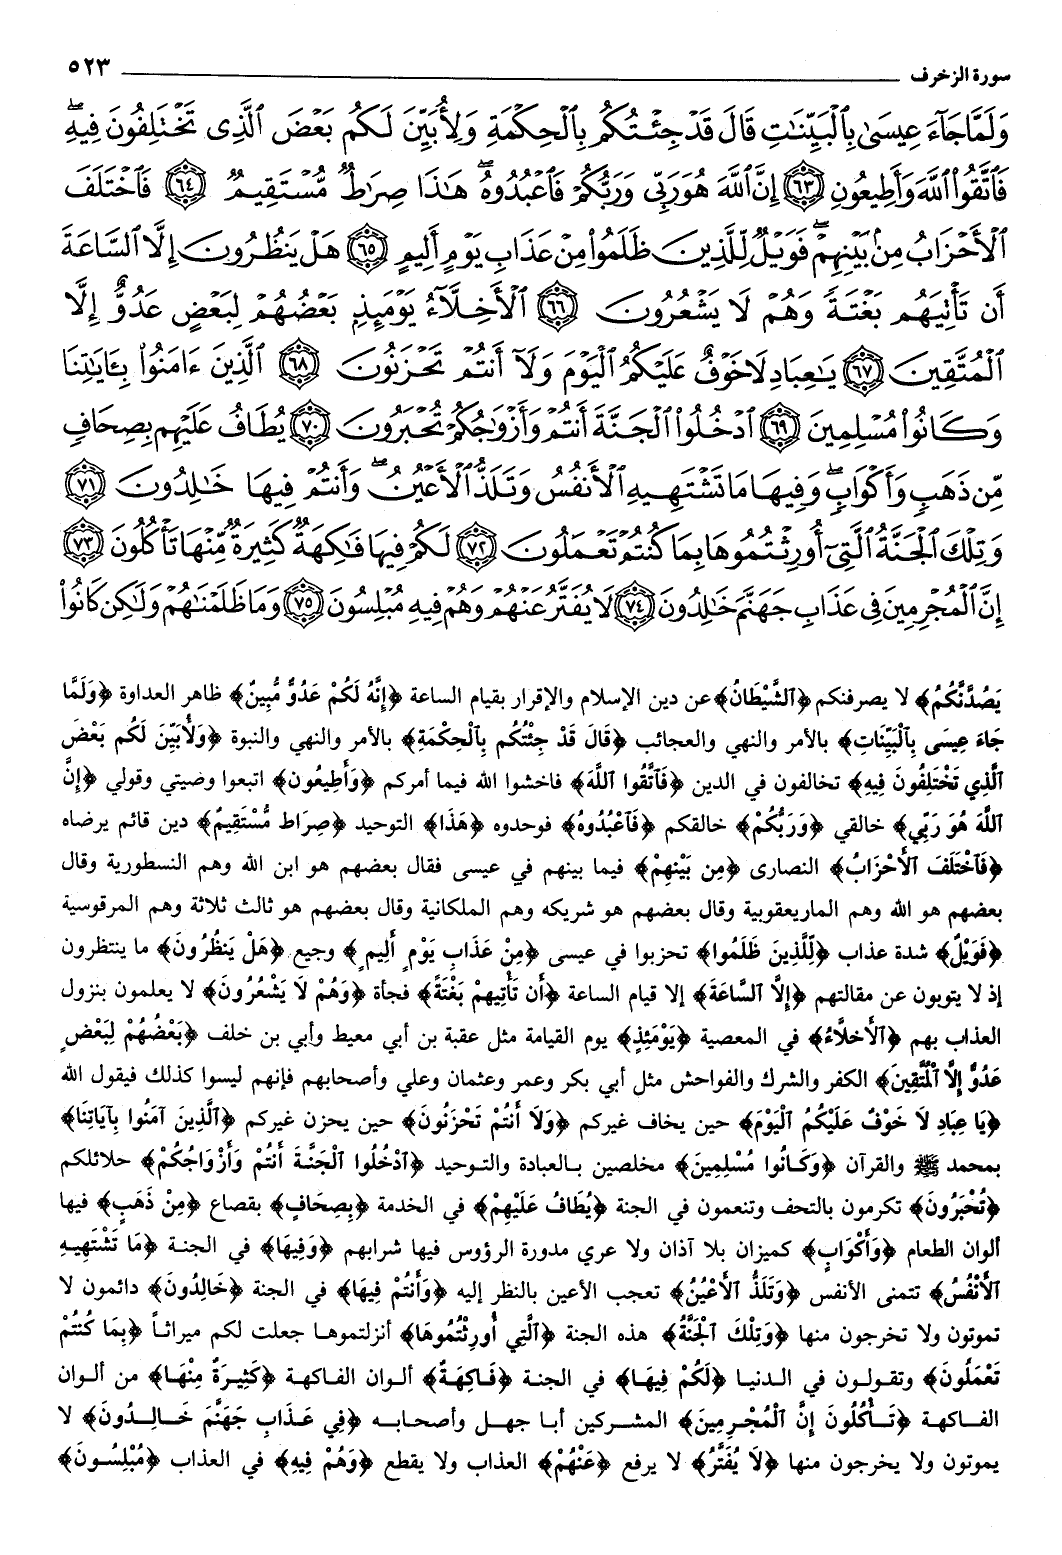 سورة الزخرف ٥٢٣
وَلَمَّا جَآءَ عِيسَىٰ بِٱلْبَيِّنَٰتِ قَالَ قَدْ جِئْتُكُم بِٱلْحِكْمَةِ وَلِأُبَيِّنَ لَكُم بَعْضَ ٱلَّذِى تَخْتَلِفُونَ فِيهِ ۖ
فَٱتَّقُوا۟ ٱللَّهَ وَأَطِيعُونِ ٦٣ إِنَّ ٱللَّهَ هُوَ رَبِّى وَرَبُّكُمْ فَٱعْبُدُوهُ ۚ هَٰذَا صِرَٰطٌ مُّسْتَقِيمٌ ٦٤ فَٱخْتَلَفَ
ٱلْأَحْزَابُ مِنۢ بَيْنِهِمْ ۖ فَوَيْلٌ لِّلَّذِينَ ظَلَمُوا۟ مِنْ عَذَابِ يَوْمٍ أَلِيمٍ ٦٥ هَلْ يَنظُرُونَ إِلَّا ٱلسَّاعَةَ
أَن تَأْتِيَهُم بَغْتَةً وَهُمْ لَا يَشْعُرُونَ ٦٦ ٱلْأَخِلَّآءُ يَوْمَئِذٍۭ بَعْضُهُمْ لِبَعْضٍ عَدُوٌّ إِلَّا
ٱلْمُتَّقِينَ ٦٧ يَٰعِبَادِ لَا خَوْفٌ عَلَيْكُمُ ٱلْيَوْمَ وَلَآ أَنتُمْ تَحْزَنُونَ ٦٨ ٱلَّذِينَ ءَامَنُوا۟ بِـَٔايَٰتِنَا
وَكَانُوا۟ مُسْلِمِينَ ٦٩ ٱدْخُلُوا۟ ٱلْجَنَّةَ أَنتُمْ وَأَزْوَٰجُكُمْ تُحْبَرُونَ ٧٠ يُطَافُ عَلَيْهِم بِصِحَافٍ
مِّن ذَهَبٍ وَأَكْوَابٍ ۖ وَفِيهَا مَا تَشْتَهِيهِ ٱلْأَنفُسُ وَتَلَذُّ ٱلْأَعْيُنُ ۖ وَأَنتُمْ فِيهَا خَٰلِدُونَ ٧١
وَتِلْكَ ٱلْجَنَّةُ ٱلَّتِىٓ أُورِثْتُمُوهَا بِمَا كُنتُمْ تَعْمَلُونَ ٧٢ لَكُمْ فِيهَا فَٰكِهَةٌ كَثِيرَةٌ مِّنْهَا تَأْكُلُونَ ٧٣
إِنَّ ٱلْمُجْرِمِينَ فِى عَذَابِ جَهَنَّمَ خَٰلِدُونَ ٧٤ لَا يُفَتَّرُ عَنْهُمْ وَهُمْ فِيهِ مُبْلِسُونَ ٧٥ وَمَا ظَلَمْنَٰهُمْ وَلَٰكِن كَانُوا۟
يَصُدَّنَّكُمُ﴾ لا يصرفنكم ﴿ٱلشَّيْطَانُ﴾ عن دين الإسلام والإقرار بقيام الساعة ﴿إِنَّهُ لَكُمْ عَدُوٌّ مُّبِينٌ﴾ ظاهر العداوة ﴿وَلَمَّا
جَاءَ عِيسَى بِٱلْبَيِّنَاتِ﴾ بالأمر والنهي والعجائب ﴿قَالَ قَدْ جِئْتُكُم بِٱلْحِكْمَةِ﴾ بالأمر والنهي والنبوة ﴿وَلأُبَيِّنَ لَكُم بَعْضَ
ٱلَّذِي تَخْتَلِفُونَ فِيهِ﴾ تخالفون في الدين ﴿فَٱتَّقُوا ٱللَّهَ﴾ فاخشوا الله فيما أمركم ﴿وَأَطِيعُونِ﴾ اتبعوا وصيتي وقولي ﴿إِنَّ
ٱللَّهَ هُوَ رَبِّي﴾ خالقي ﴿وَرَبُّكُمْ﴾ خالقكم ﴿فَٱعْبُدُوهُ﴾ فوحدوه ﴿هَذَا﴾ التوحيد ﴿صِرَاط مُّسْتَقِيمٌ﴾ دين قائم يرضاه
﴿فَٱخْتَلَفَ ٱلأَحْزَابُ﴾ النصارى ﴿مِن بَيْنِهِمْ﴾ فيما بينهم في عيسى فقال بعضهم هو ابن الله وهم النسطورية وقال
بعضهم هو الله وهم الماريعقوبية وقال بعضهم هو شريكه وهم الملكانية وقال بعضهم هو ثالث ثلاثة وهم المرقوسية
﴿فَوَيْلٌ﴾ شدة عذاب ﴿لِّلَّذِينَ ظَلَمُوا﴾ تحزبوا في عيسى ﴿مِنْ عَذَابِ يَوْمٍ أَلِيمٍ﴾ وجيع ﴿هَلْ يَنظُرُونَ﴾ ما ينتظرون
إذ لا يتوبون عن مقالتهم ﴿إِلَّا ٱلسَّاعَةَ﴾ إلا قيام الساعة ﴿أَن تَأْتِيهمْ بَغْتَةً﴾ فجأة ﴿وَهُمْ لَا يَشْعُرُونَ﴾ لا يعلمون بنزول
العذاب بهم ﴿ٱلأَخلاَّءُ﴾ في المعصية ﴿يَوْمَئِذٍ﴾ يوم القيامة مثل عقبة بن أبي معيط وأبي بن خلف ﴿بَعْضُهُمْ لِبَعْضٍ
عَدُوٌّ إِلَّا ٱلْمُتَّقِينَ﴾ الكفر والشرك والفواحش مثل أبي بكر وعمر وعثمان وعلي وأصحابهم فإنهم ليسوا كذلك فيقول الله
﴿يَا عِبَادِ لَا خَوْفٌ عَلَيْكُمُ ٱلْيَوْمَ﴾ حين يخاف غيركم ﴿وَلَا أَنتُمْ تَحْزَنُونَ﴾ حين يحزن غيركم ﴿ٱلَّذِينَ آمَنُوا بِآيَاتِنَا﴾
بمحمد ﷺ والقرآن ﴿وَكَانُوا مُسْلِمِينَ﴾ مخلصين بالعبادة والتوحيد ﴿ٱدْخُلُوا ٱلْجَنَّةَ أَنتُمْ وَأَزْوَاجُكُمْ﴾ حلائلكم
﴿تُحْبَرُونَ﴾ تكرمون بالتحف وتنعمون في الجنة ﴿يُطَافُ عَلَيْهِمْ﴾ في الخدمة ﴿بِصِحَافٍ﴾ بقصاع ﴿مِنْ ذَهَبٍ﴾ فيها
ألوان الطعام ﴿وَأَكْوَابٍ﴾ كميزان بلا آذان ولا عري مدورة الرؤوس فيها شرابهم ﴿وَفِيهَا﴾ في الجنة ﴿مَا تَشْتَهِيهِ
ٱلأَنْفُسُ﴾ تتمنى الأنفس ﴿وَتَلَذُّ ٱلأَعْيُنُ﴾ تعجب الأعين بالنظر إليه ﴿وَأَنتُمْ فِيهَا﴾ في الجنة ﴿خَالِدُونَ﴾ دائمون لا
تموتون ولا تخرجون منها ﴿وَتِلْكَ ٱلْجَنَّةُ﴾ هذه الجنة ﴿ٱلَّتِي أُورِثْتُمُوهَا﴾ أنزلتموها جعلت لكم ميراثاً ﴿بِمَا كُنتُمْ
تَعْمَلُونَ﴾ وتقولون في الدنيا ﴿لَكُمْ فِيهَا﴾ في الجنة ﴿فَاكِهَةٌ﴾ ألوان الفاكهة ﴿كَثِيرَةٌ مِنْهَا﴾ من ألوان
الفاكهة ﴿تَأْكُلُونَ إِنَّ ٱلْمُجْرِمِينَ﴾ المشركين أبا جهل وأصحابه ﴿فِي عَذَابِ جَهَنَّمَ خَالِدُونَ﴾ لا
يموتون ولا يخرجون منها ﴿لَا يُفَتَّرُ﴾ لا يرفع ﴿عَنْهُمْ﴾ العذاب ولا يقطع ﴿وَهُمْ فِيهِ﴾ في العذاب ﴿مُبْلِسُونَ﴾